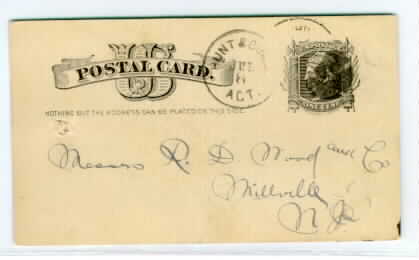 US
POSTAL CARD.
NOTHING BUT THE ADDRESS CAN BE PLACED ON THIS SIDE.
AGT.
Messrs R. D. Wood and Co
Millville
N J